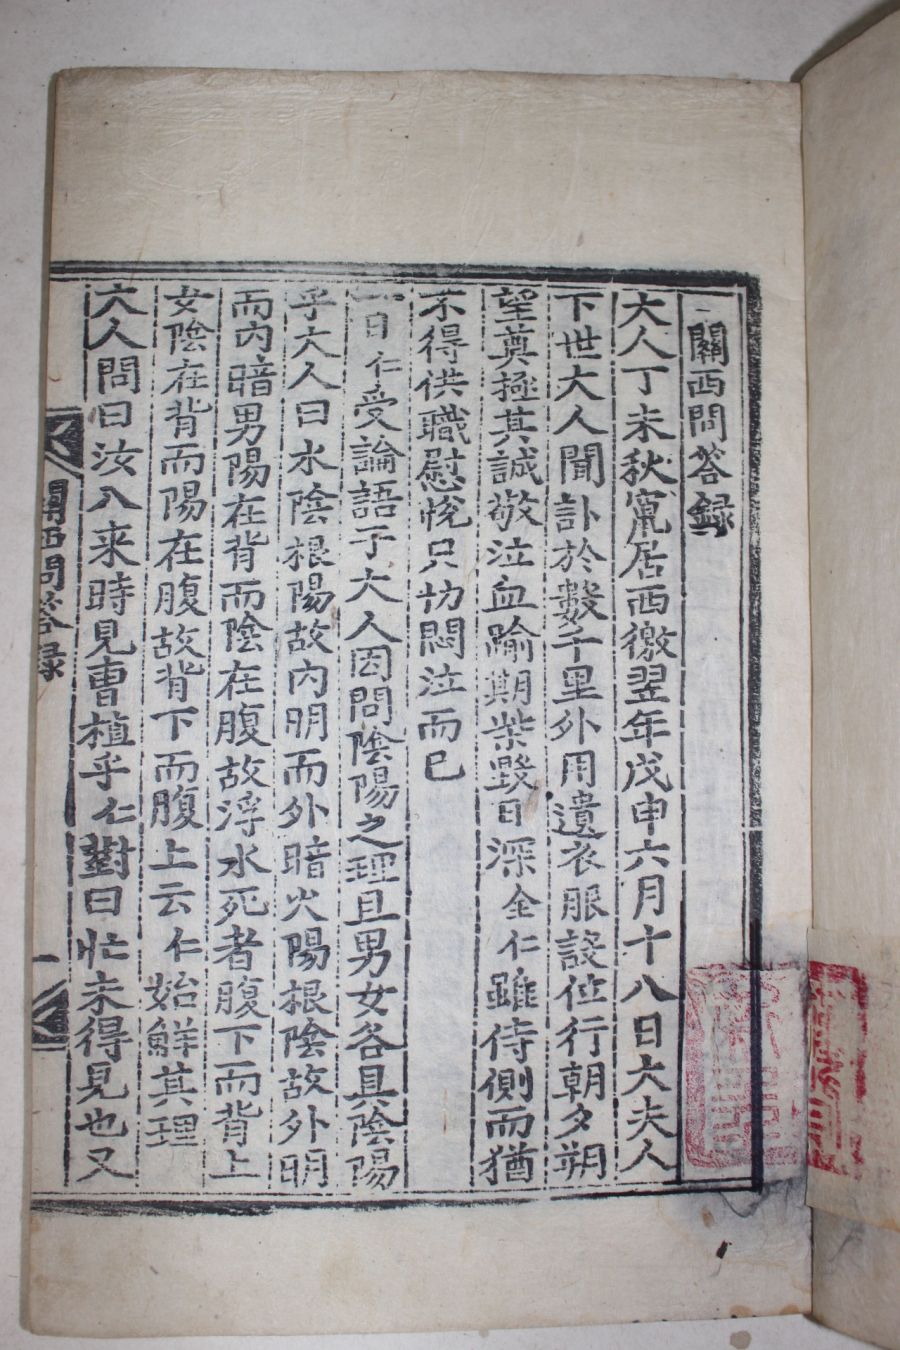 關西問答錄
大人丁未秋竄居西徼翌年戊申六月十八日大夫人
下世大人聞訃於數千里外用遺衣服設位行朝夕朔
望奠極其誠敬泣血踰期柴毁日深全仁雖侍側而猶
不得供職慰悅只切悶泣而已
一日仁受論語于大人因問陰陽之理且男女各具陰陽
乎大人曰水陰根陽故內明而外暗火陽根陰故外明
而內暗男陽在背而陰在腹故浮水死者腹下而背上
女陰在背而陽在腹故背下而腹上云仁始鮮其理
大人問曰汝入来時見曺植乎仁對曰忙未得見也又
關西問答録
一